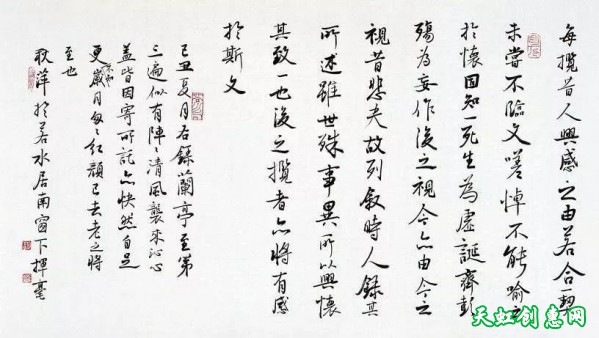 每攬昔人興感之由若合一契
未嘗不臨文嗟悼不能喻之
於懷固知一死生為虛誕齊彭
殤為妄作後之視今亦由今之
視昔悲夫故列敘時人錄其
所述雖世殊事異所以興懷
其致一也後之攬者亦將有感
於斯文
己丑夏月右錄蘭亭至第
三遍似有陣々清風襲來沁心
蓋皆因寄所託亦快然自足
更歲月匆々紅顏已去老之將
至也
耿萍於若水居南窗下揮毫
天虹创意网